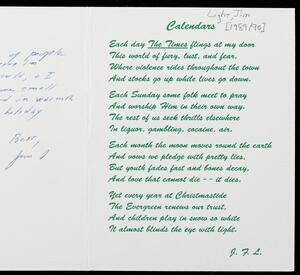 of people
small
holiday
Best,
Jim
Light, Jim
[1989/90]
Calendars
Each day The Times flings at my door
This world of fury, lust, and fear.
Where violence rides throughout the town
And stocks go up while lives go down.
Each Sunday some folk meet to pray
And worship Him in their own way.
The rest of us seek thrills elsewhere
In liquor, gambling, cocaine, air.
Each month the moon moves round the earth
And vows we pledge with pretty lies.
But youth fades fast and bones decay,
And love that cannot die -- it dies.
Yet every year at Christmastide
The Evergreen renews our trust,
And children play in snow so white
It almost blinds the eye with light.
J. F. L.